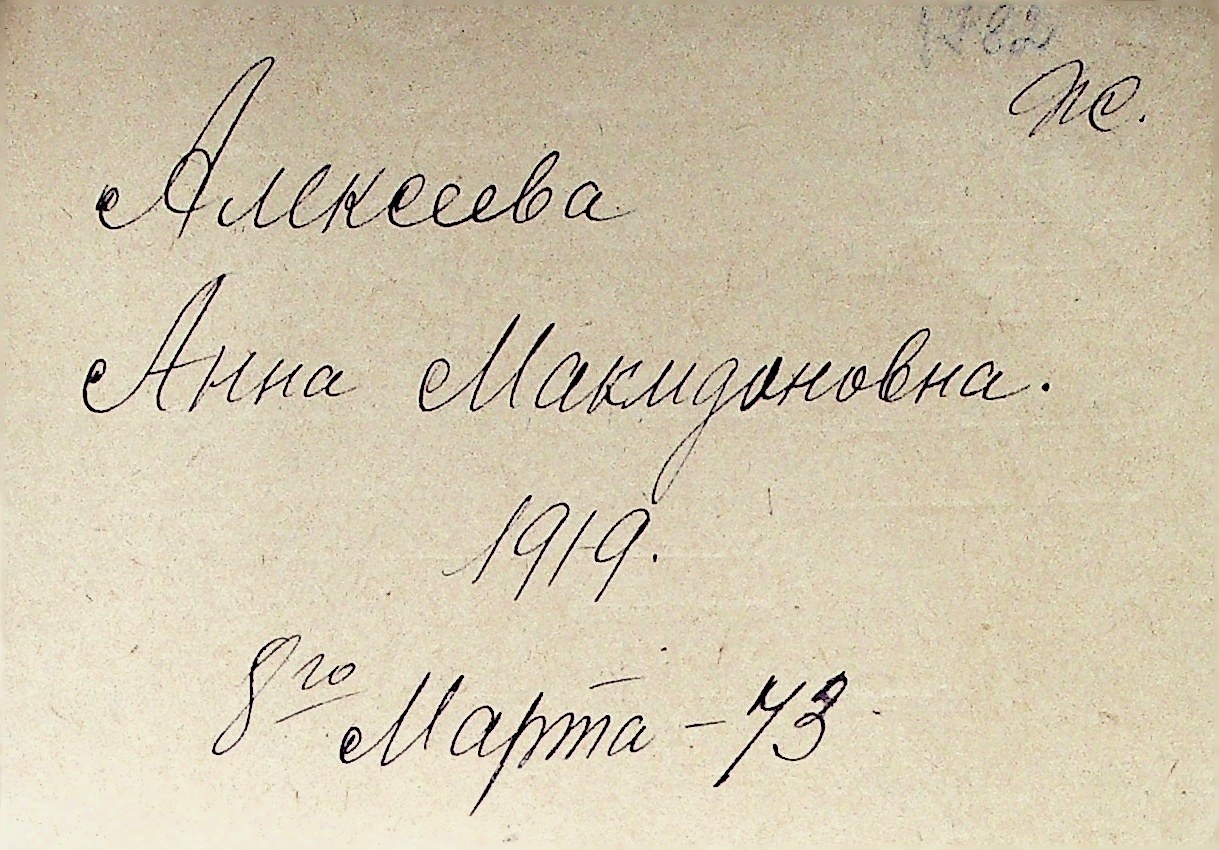 Алексеева
Анна Макидоновна.
1919.
8го Марта - 73